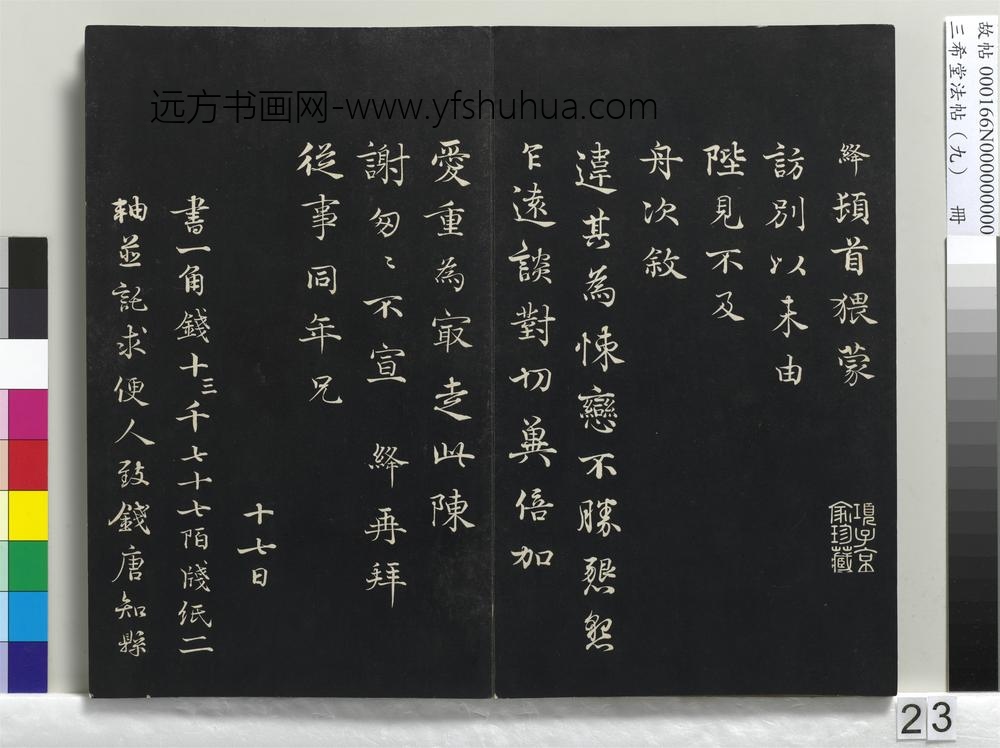 远方书画网-www.yfshuhua.com
故帖 000166N000000000
三希堂法帖（九） 冊
絳頓首猥蒙
訪別以未由
陛見不及
舟次敘
違其為悚戀不勝懇懇
乍遠談對切冀倍加
愛重為寂走此陳
謝匆〻不宣 絳再拜
從事同年兄
十七日
書一角錢十三千七十七陌牋紙二
軸並託求便人致錢唐知縣
項子京
家珍藏
23